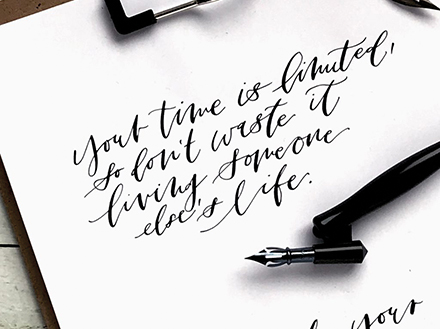 your time is limited,
so don't waste it
living someone
else's life.
your